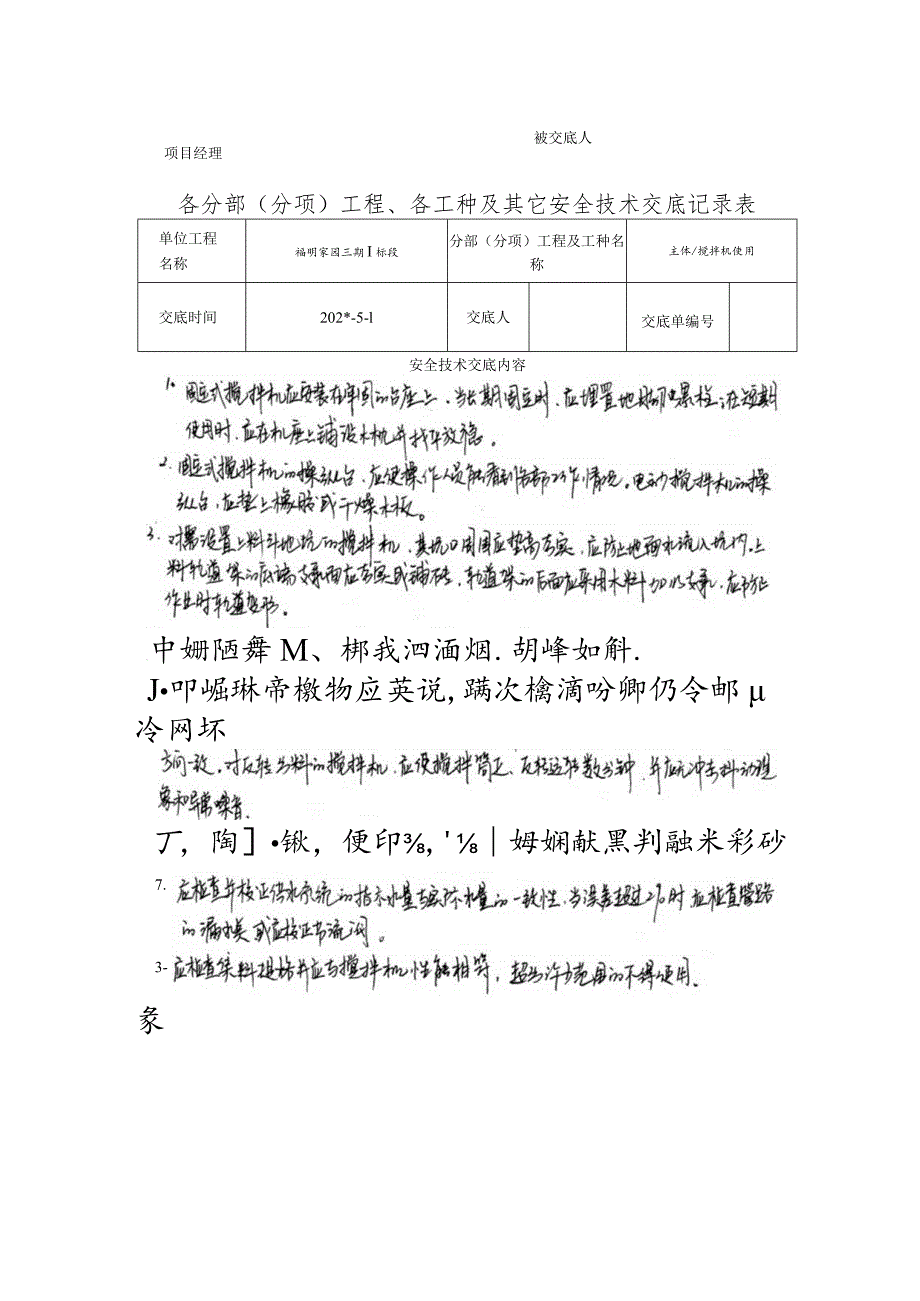 被交底人
项目经理
各分部（分项）工程、各工种及其它安全技术交底记录表
单位工程名称 福明家园三期I标段 分部（分项）工程及工种名称 主体/搅拌机使用
交底时间 202*-5-l 交底人 交底单编号
安全技术交底内容
1. 固定式搅拌机应安装在牢固的台座上，当长期固定时，应埋置地脚螺栓；在短期
使用时，应在机座上铺设木枕并找平放稳。
2. 固定式搅拌机的操纵台，应使操作人员能看到各部工作情况。电动搅拌机的操
纵台，应垫上橡胶或干燥木板。
3. 对需设置上料斗地坑的搅拌机，其坑口周围应垫高夯实，应防止地面水流入坑内。上
料轨道架的底端支承面应夯实或铺砖，轨道架的后面应采用木料加以支承，应防止
作业时轨道变形。
中姗陋舞M、梆我泗湎烟.胡峰如斛.
J•叩崛琳帝檄物应英说,蹒次檎滴吩卿仍令邮μ
冷网坏
方向一致，对反转出料的搅拌机，应使搅拌筒正、反转运转数分钟，并应无冲击抖动现
象和异常噪音.
丁，陶］•锹，便印⅜，'⅛｜姆娴献黑判融米彩砂
7. 应检查并校正供水系统的指示水量与实际水量的一致性，当误差超过2%时，应检查管路
的漏水点或应校正节流阀。
3- 应检查集料规格并应与搅拌机性能相符，超出许可范围的不得使用.
彖